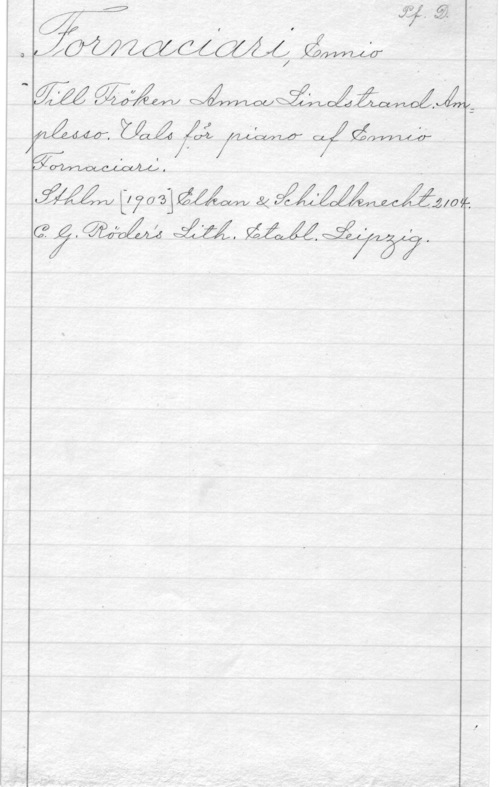 Pf. D.
Fornaciari, Ennio
Till Fröken Anna Lindstrand. Am=
plesso. Vals för piano af Ennio
Fornaciari.
Sthlm [1903] Elkan & Schildknecht 2104.
C. G. Röder's Lith. Etabl. Leipzig.